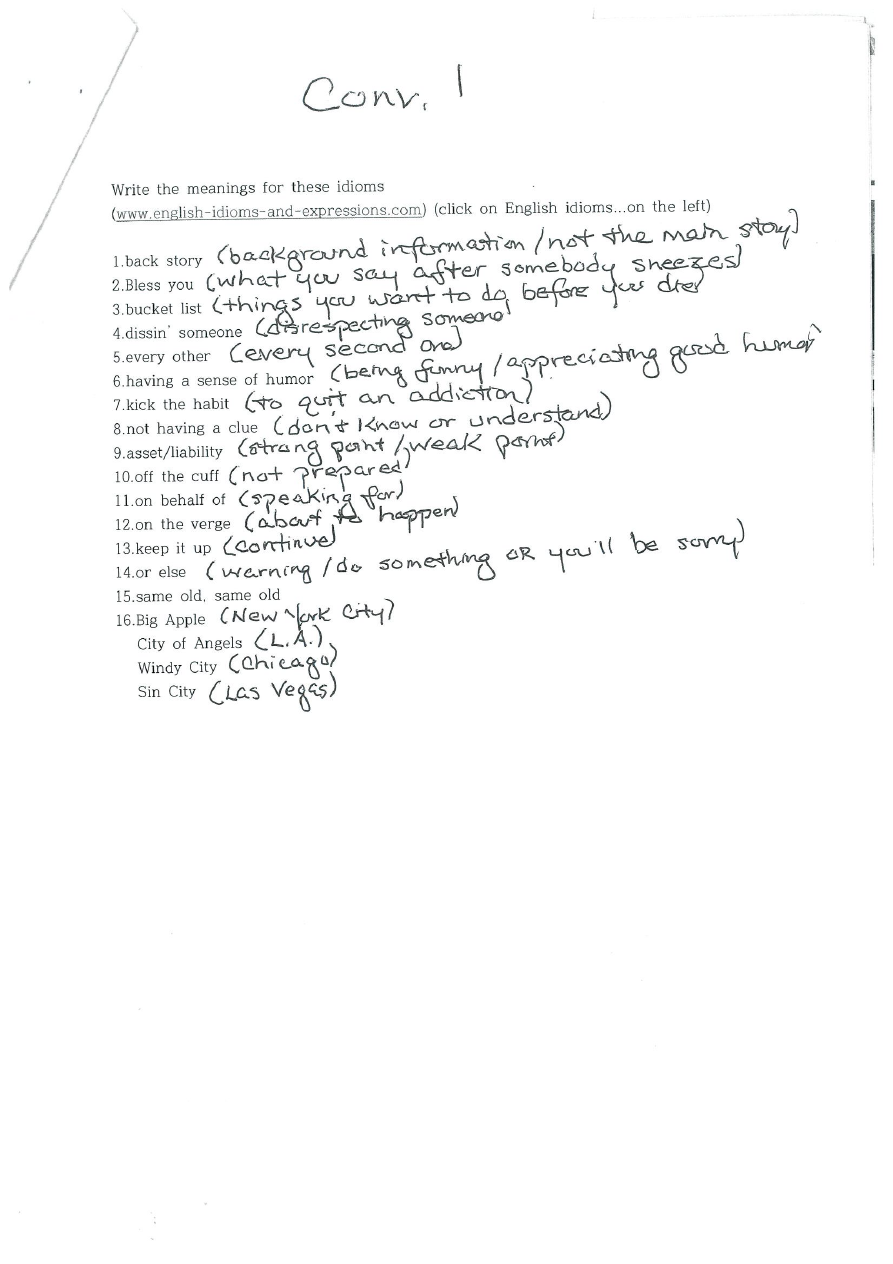 Conv. 1
Write the meanings for these idioms
(www.english-idioms-and-expressions.com) (click on English idioms...on the left)
1.back story (background information/not the main story)
2.Bless you (what you say after somebody sneezes)
3.bucket list (things you want to do before you die)
4.dissin' someone (disrespecting someone)
5.every other (every second one)
6.having a sense of humor (being funny/appreciating good humor)
7.kick the habit (to quit an addiction)
8.not having a clue (don't know or understand)
9.asset/liability (strong point/weak point)
10.off the cuff (not prepared)
11.on behalf of (speaking for)
12.on the verge (about to happen)
13.keep it up (continue)
14.or else (warning/do something OR you'll be sorry)
15.same old, same old
16.Big Apple (New York City)
City of Angels (L.A.)
Windy City (Chicago)
Sin City (Las Vegas)